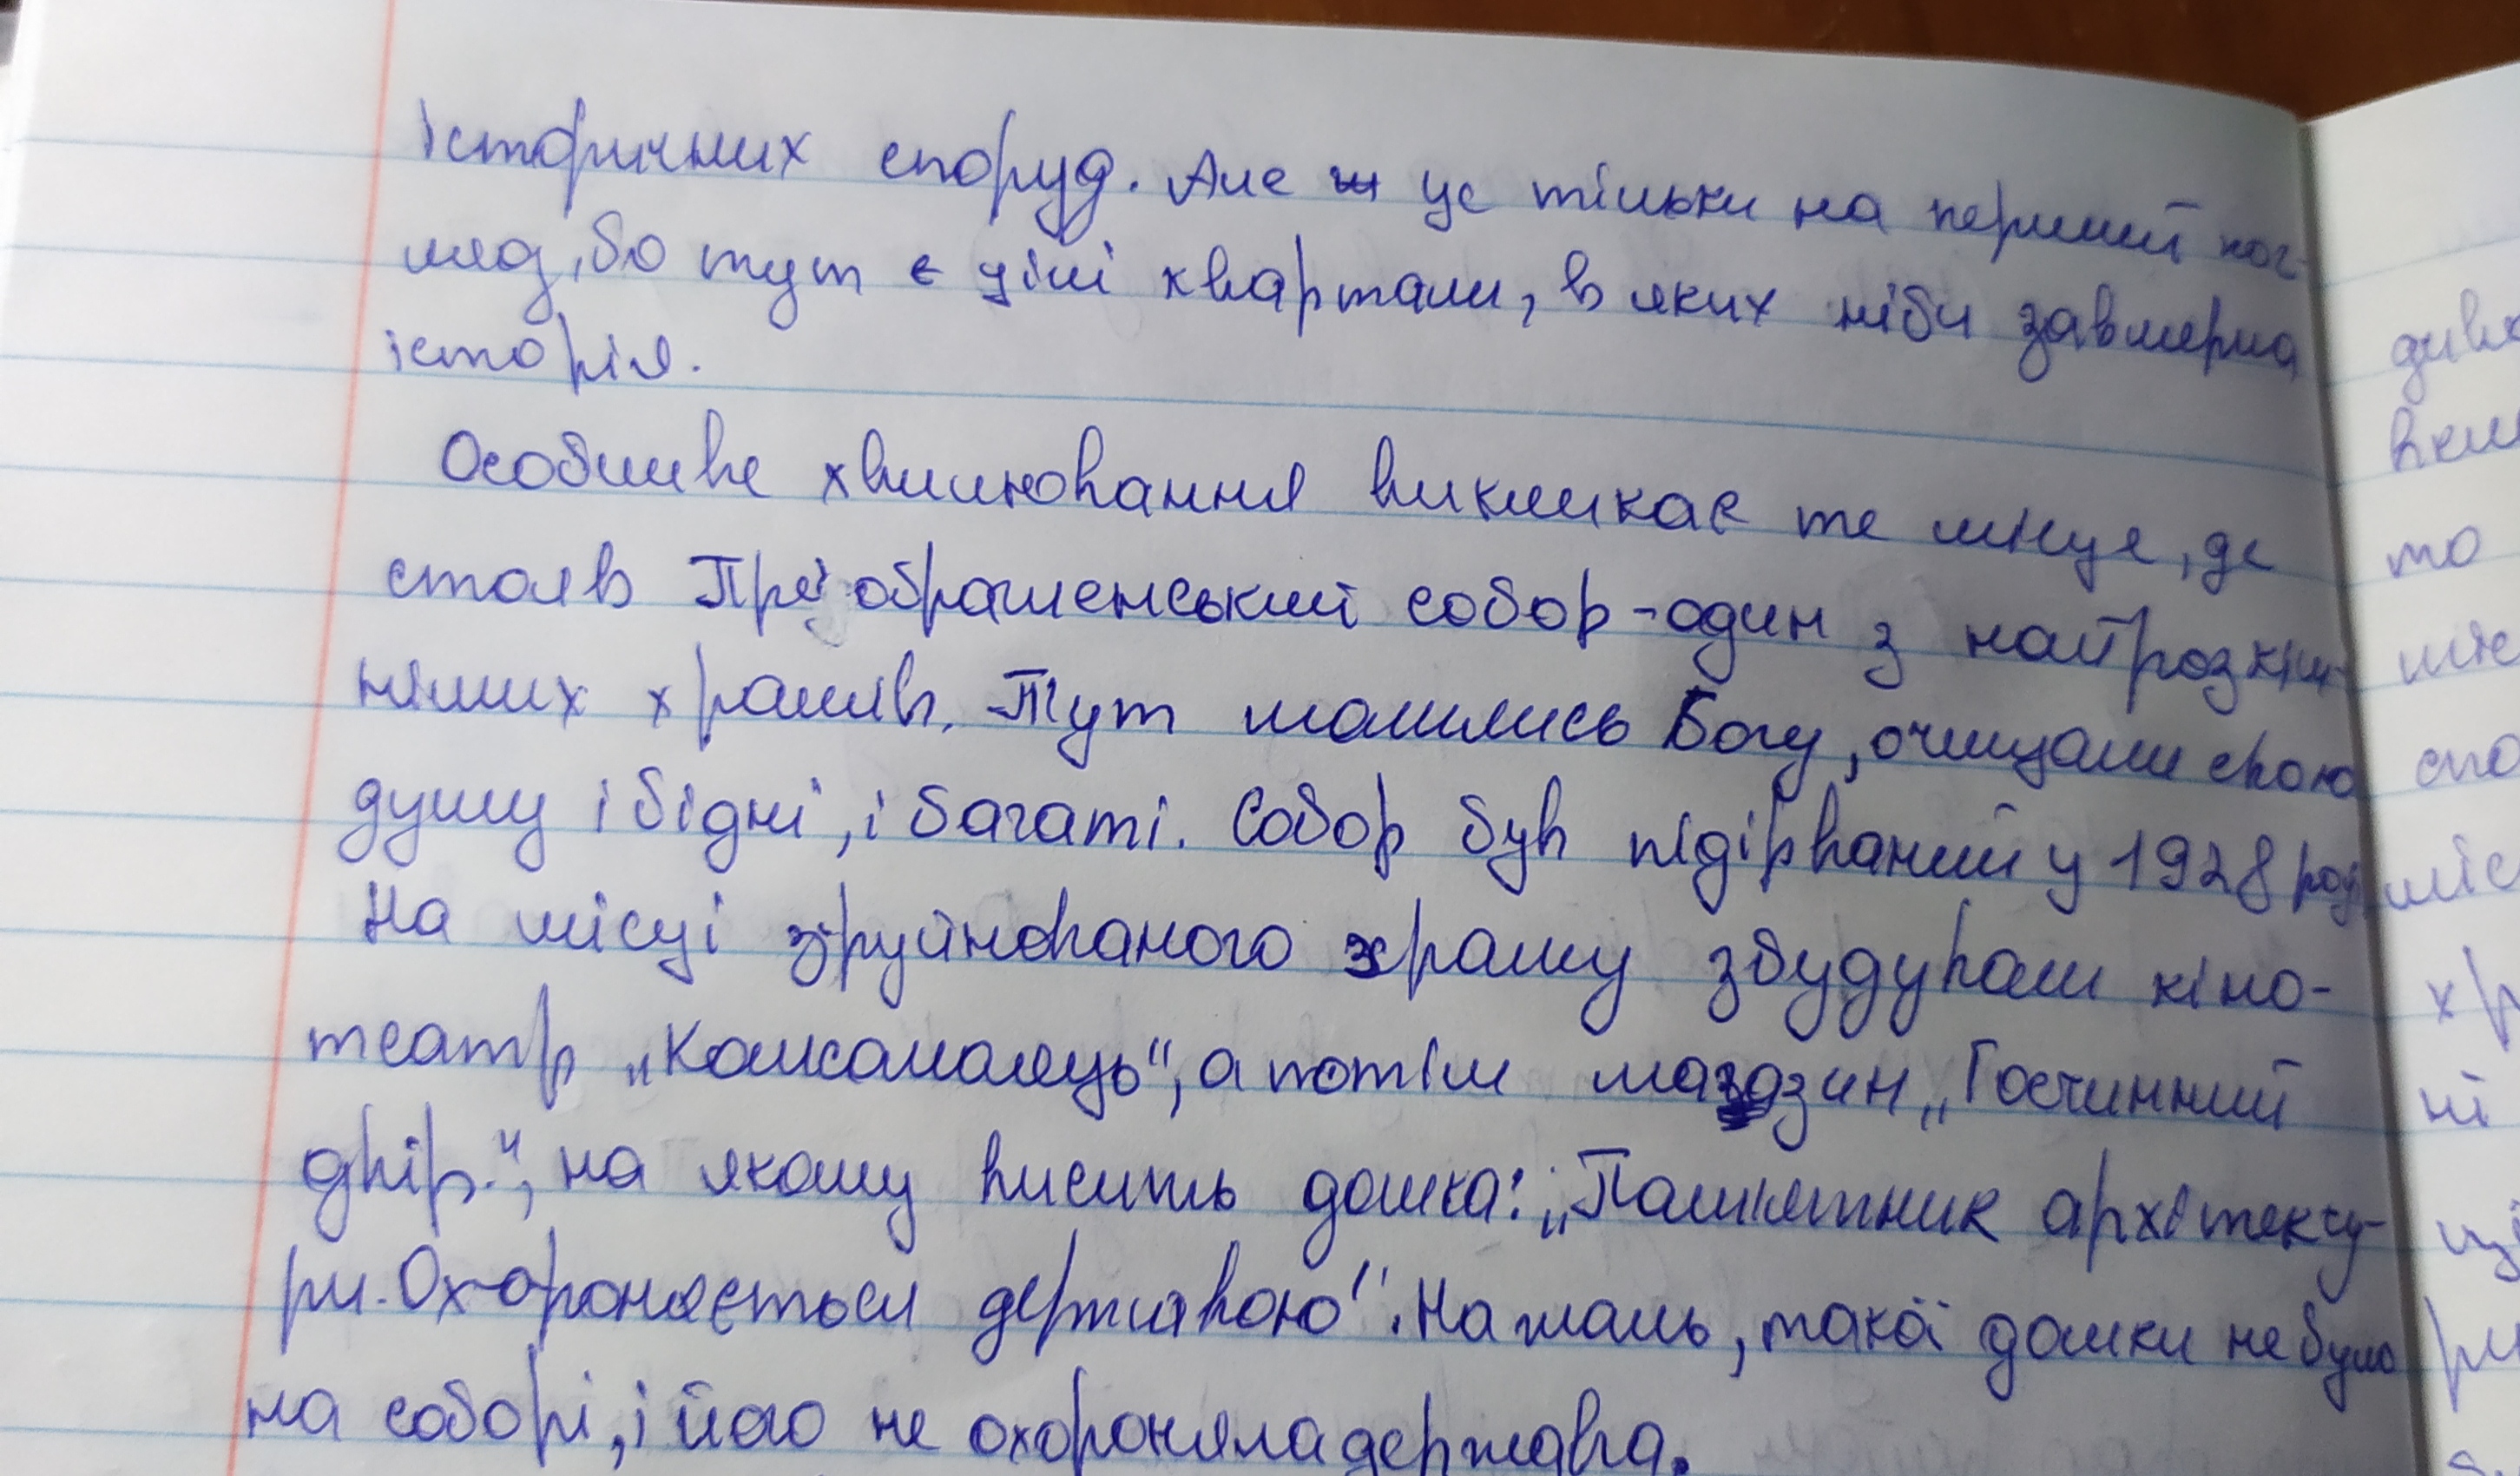 історичних споруд. Але це тільки на перший пог-
ляд, бо тут є цілі квартали, в яких ніби завмерла
історія.
Особливе хвилювання викликає те місце, де
стояв Преображенський собор - один з найрозкіш-
ніших храмів. Тут молились Богу, очищали свою
душу і бідні, і багаті. Собор був підірваний у 1928 році
На місці зруйнованого храму збудували кіно-
театр „Комсомолець", а потім магазин „Гостинний
двір.", на якому висить дошка: „Пам'ятник архітекту-
ри. Охороняється державою". На жаль, такої дошки не було
на соборі, і його не охороняла держава.